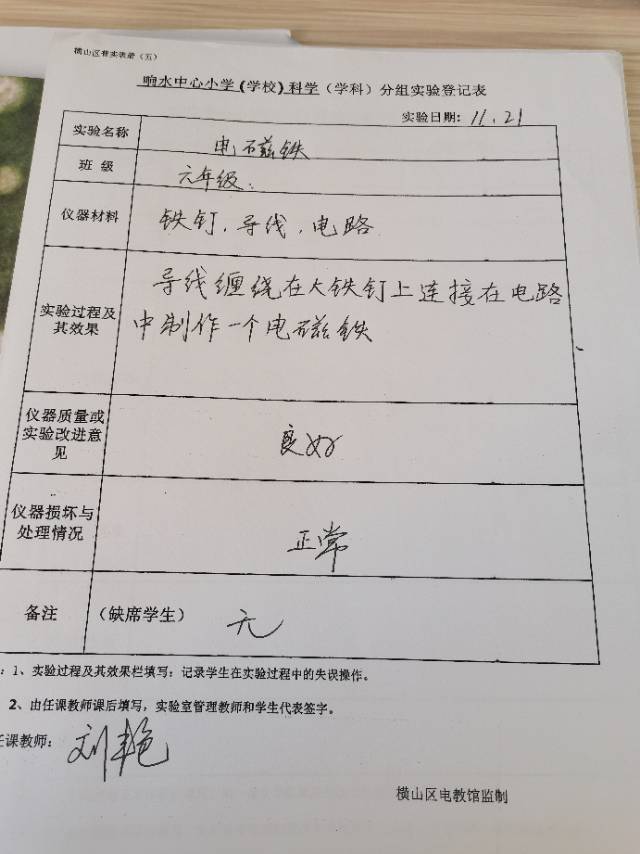 横山区普实表册（五）
响水中心小学（学校）科学（学科）分组实验登记表
实验日期：11.21
实验名称 电磁铁
班 级 六年级.
仪器材料 铁钉，导线，电路
实验过程及其效果 导线缠绕在大铁钉上连接在电路
中制作一个电磁铁
仪器质量或实验改进意见 良好
仪器损坏与处理情况 正常
备注 （缺席学生） 无
：1、实验过程及其效果栏填写：记录学生在实验过程中的失误操作。
2、由任课教师课后填写，实验室管理教师和学生代表签字。
任课教师：刘艳
横山区电教馆监制